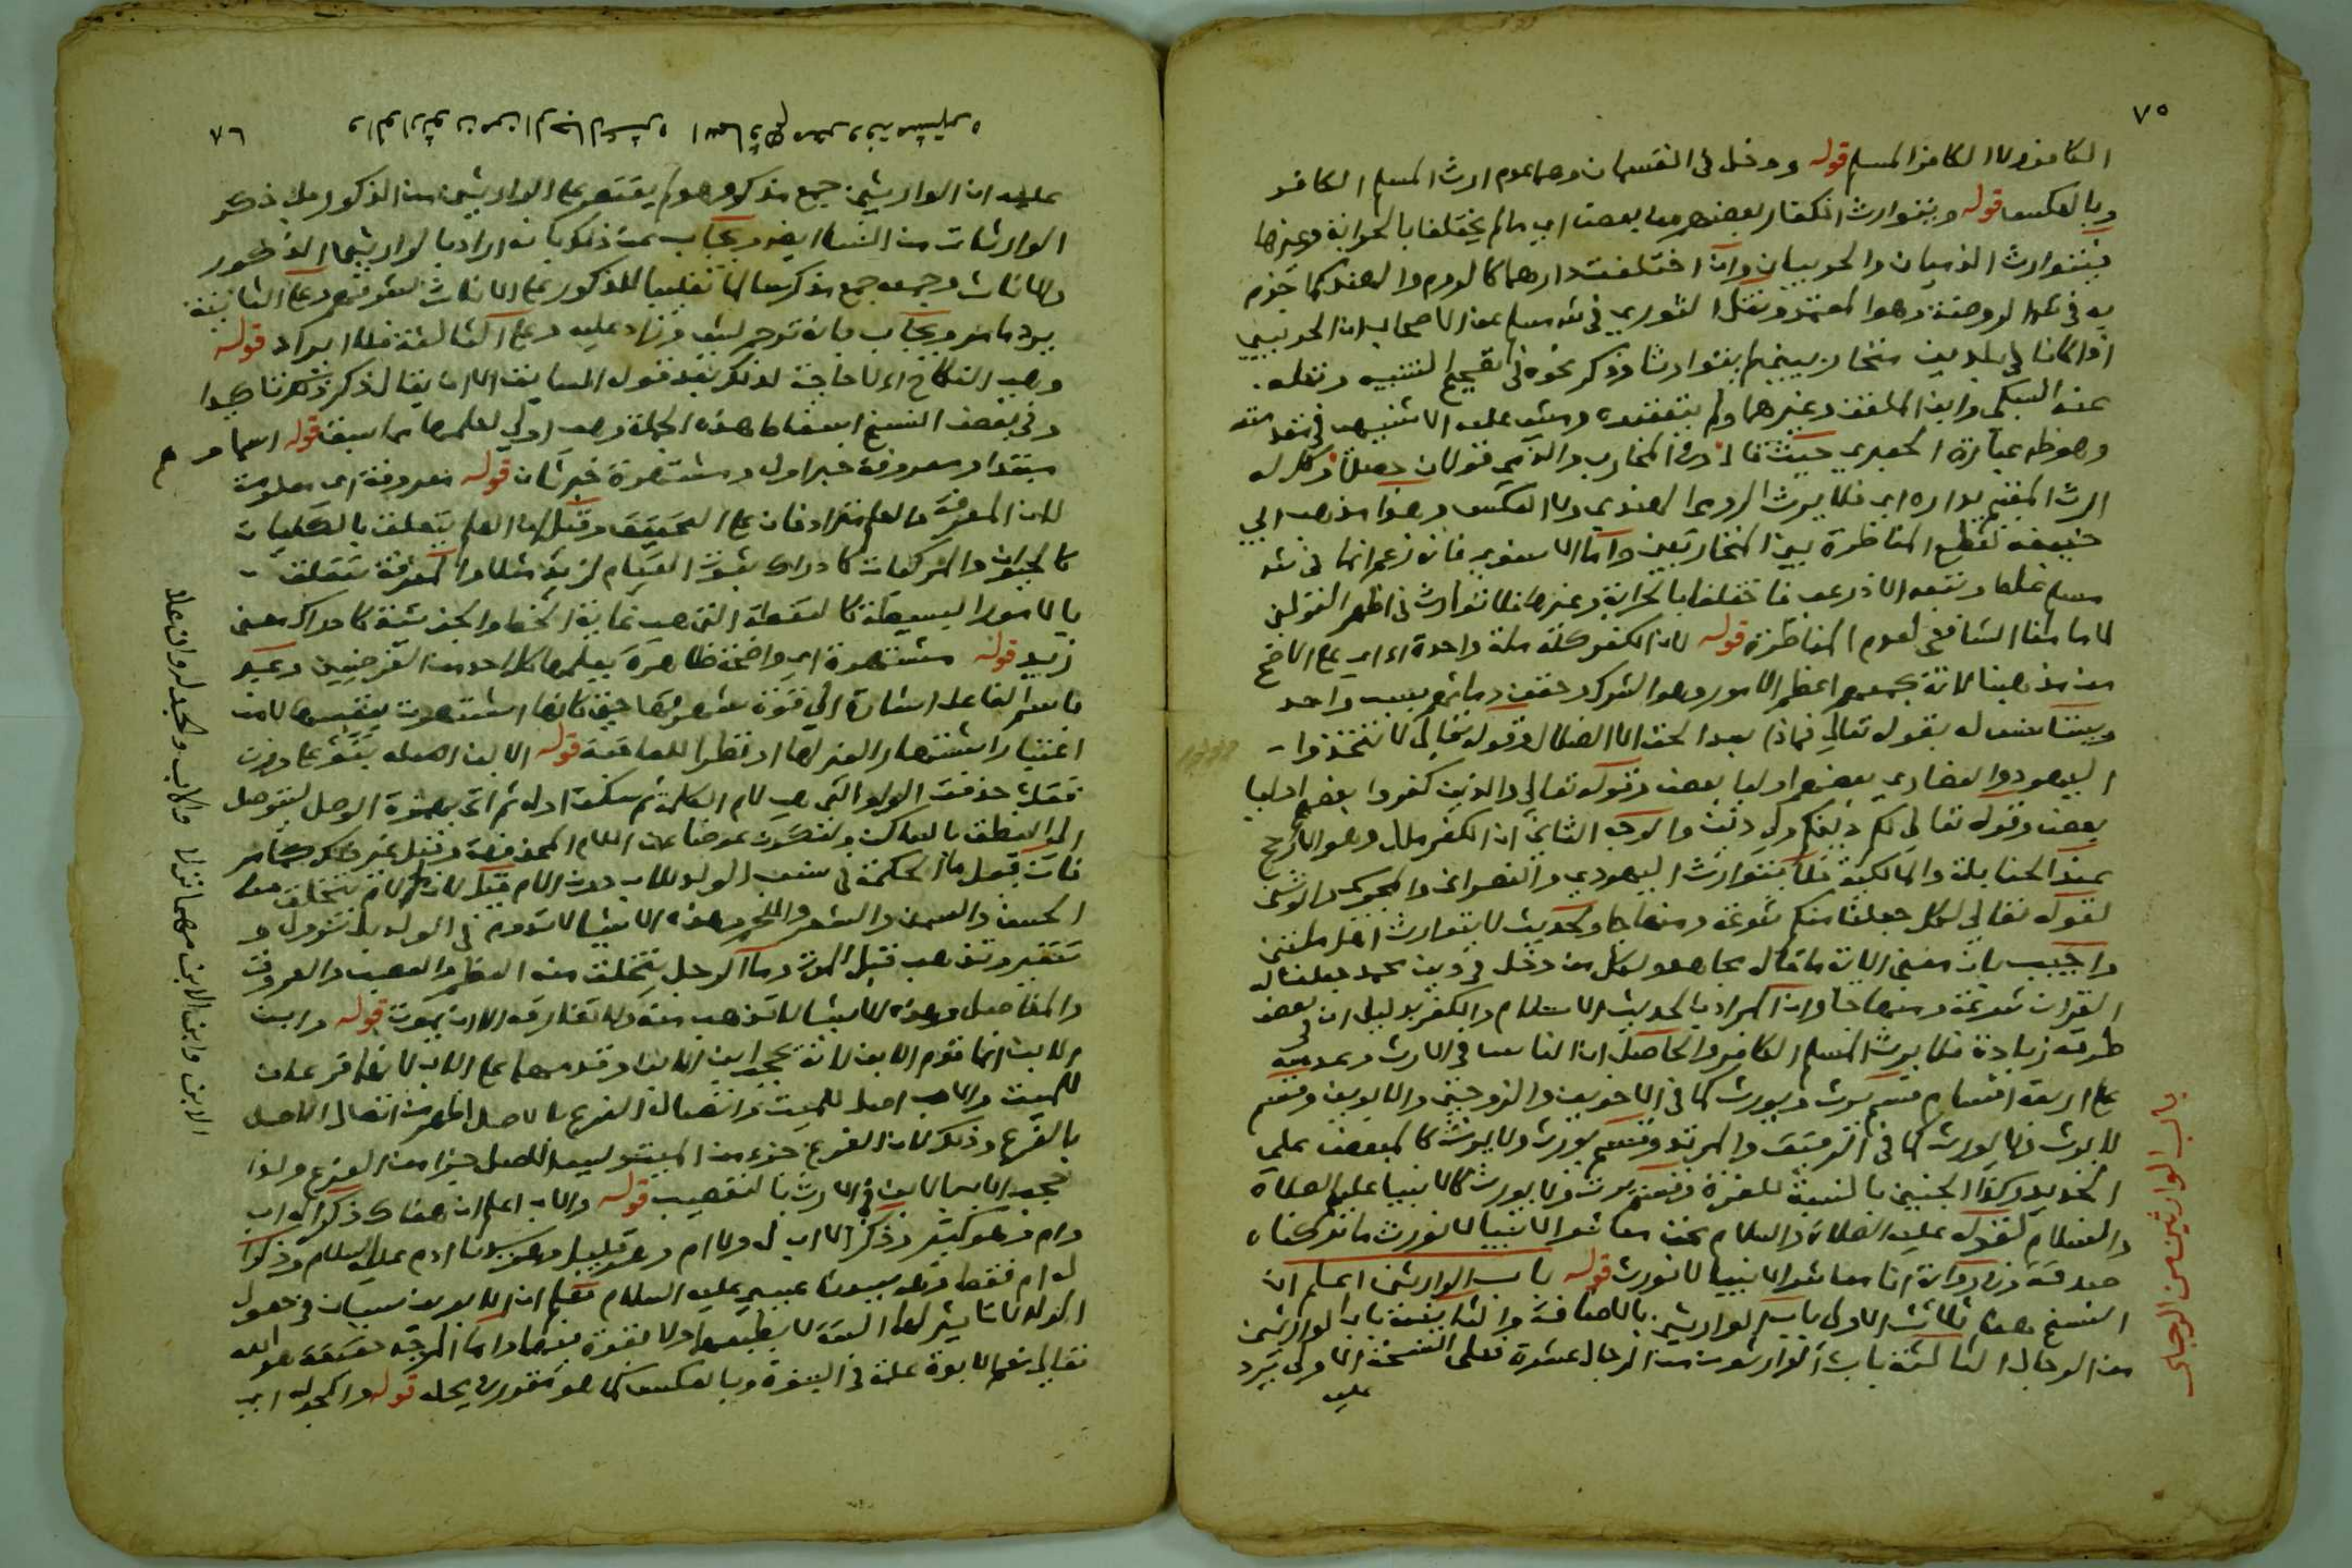 ٧٥
الكافر ولا الكافر المسلم قوله ودخل في القسمان وهما عدم ارث المسلم الكافر
وبالعكس قوله ويتوارث الكفار بعضهم من بعض اي ما لم يختلفا بالحرابة وغيرها
فيتوارث الذميان والحربيان وان اختلفت دارهما كالروم والهند كما جزم
به في الروضة وهو المعتمد ونقل النووي في شرح مسلم عن الاصحاب ان الحربيين
اذا كانا في بلدين متحاربين لم يتوارثا وذكر نحوه في تصحيح التنبيه ونقله
عنه السبكي وابن الملقن وغيرهما ولم يتعقبوه ومشى عليه الاشنهي في
وهو ظ عبارة الجعبري حيث قال وفي المحارب والذمي قولان حصلا وكل له
ارث المقيم بداره اي فلا يرث الرومي الهندي ولا العكس وهذا مذهب ابي
حنيفة لقطع المناظرة بين المتحاربين واما الاسنوي فانه زعم ان ما في شرح
مسلم غلط وتبعه الاذرعي فاختلفا بالحرابة وغيرها فلا توارث في اظهر القولين
لامامنا الشافعي لعدم المناظرة قوله لان الكفر كله ملة واحدة اي على الاصح
من مذهبنا لانه يجمعهم اعظم الامور وهو الشرك وحقن دمائهم بسبب واحد
ويستانس له بقوله تعالى فماذا بعد الحق الا الضلال وقوله تعالى لا تتخذوا
اليهود والنصارى بعضهم اوليا بعض وقوله تعالى والذين كفروا بعضهم اوليا
بعض وقوله تعالى لكم دينكم ولي دين والوجه الثاني ان الكفر ملل وهو الارجح
عند الحنابلة والمالكية فلا يتوارث اليهودي والنصراني والمجوسي والوثني
لقوله تعالى لكل جعلنا منكم شرعة ومنهاجا ولحديث لا يتوارث اهل ملتين
واجيب بان معنى الاية ما قال مجاهد لكل من دخل في دين محمد جعلنا له
القران شرعة ومنهاجا وان المراد بالحديث الاسلام والكفر بدليل ان في بعض
طرقه زيادة فلا يرث المسلم الكافر والحاصل ان الناس في الارث وعدمه
على اربعة اقسام قسم يرث ويورث كما في الاخوين والزوجين والابوين وقسم
لا يرث ولا يورث كما في الرقيق والمرتد وقسم يورث ولا يرث كالمبعض على
الجديد وكذا الجنين بالنسبة للغرة وقسم يرث ولا يورث كالانبيا عليهم الصلاة
والسلام لقوله عليه الصلاة والسلام نحن معاشر الانبيا لا نورث ما تركناه
صدقة وفي رواية انا معاشر الانبيا لا نورث قوله باب الوارثين اعلم ان
النسخ هنا ثلاث الاولى باب الوارثين بالاضافة والثانية باب الوارثين
من الرجال الثالثة باب الوارثون من الرجال عشرة فعلى النسخة الاولى يرد
عليه
باب الوارثين من الرجال
٧٦
والوارثون من الرجال عشره اسماوهم معروفة مشتهره
عليه ان الوارثين جمع مذكر وهو لم يقتصر على الوارثين من الذكور بل ذكر
الوارثات من النسا ايضا ويجاب عن ذلك بانه اراد بالوارثين الذكور
والاناث وجمعه جمع مذكر سالما تغليبا للذكور على الاناث لشرفهم وعلى الثانية
يرد ما مر ويجاب بانه ترجم لشي وزاد عليه وعلى الثالثة فلا ايراد قوله
وهي النكاح لا حاجة لذلك بعد قوله السابق الا ان يقال ذكره تاكيدا
وفي بعض النسخ اسقاط هذه الجملة وهي اولى لعلمها مما سبق قوله اسماوهم
مبتدا ومعروفة خبر اول ومشتهرة خبر ثان قوله معروفة اي معلومة
لان المعرفة والعلم مترادفان على التحقيق وقيل ان العلم يتعلق بالكليات
والمركبات كادراك ثبوت القيام لزيد مثلا والمعرفة تتعلق
بالامور البسيطة كالنقطة التي هي نهاية الخط والجزئية كادراك معنى
زيد قوله مشتهرة اي واضحة ظاهرة يعلمها كل احد من الفرضيين وعبر
باسم الفاعل اشارة الى قوة شهرتها حتى كانها اشتهرت بنفسها لا من
قوله الابن اصله بنو على وزن
فعل حذفت الواو التي هي لام الكلمة ثم سكنت اوله ثم اتى بهمزة الوصل ليتوصل
الى النطق بالساكن ولتكون عوضا عن اللام المحذوفة وقيل غير ذلك
فان قيل ما الحكمة في نسب الولد للاب دون الام قيل لان الام يتخلق منها
الحسن والسمن والشعر واللحم وهذه الاشيا لا تدوم في الولد بل تزول و
تتغير وتذهب قبل الموت وما الرجل يتخلق منه العظم والعصب والعروق
والمفاصل وهذه الاشيا لا تذهب منه ولا تفارقه الا ان يموت قوله وابن
الابن انما قدم الابن لانه يحجب ابن الابن وقدمهما على الاب لانهما فرعان
للميت والاب اصل للميت واتصال الفرع بالاصل اظهر من اتصال الاصل
بالفرع وذلك لان الفرع جزء من الميت وليس الاصل جزا من الفرع ولذا
يحجب الاب بالابن في الارث بالتعصيب قوله والاب اعلم ان هناك ذكرا له اب
وام وهو كثير وذكرا لا اب له ولا ام وهو قليل وهو سيدنا ادم عليه السلام وذكرا
له ام فقط وهو سيدنا عيسى عليه السلام فعلم ان الابوين سببان في حصول
الولد لا تاثير لهما البتة لا بطبعها ولا بقوة فيها واما الموجد حقيقة هو الله
تعالى نعم الابوة علة في البنوة وبالعكس كما هو مقرر في محله قوله والجد له اي
الابن وابن الابن مهما نزلا والاب والجد له وان علا